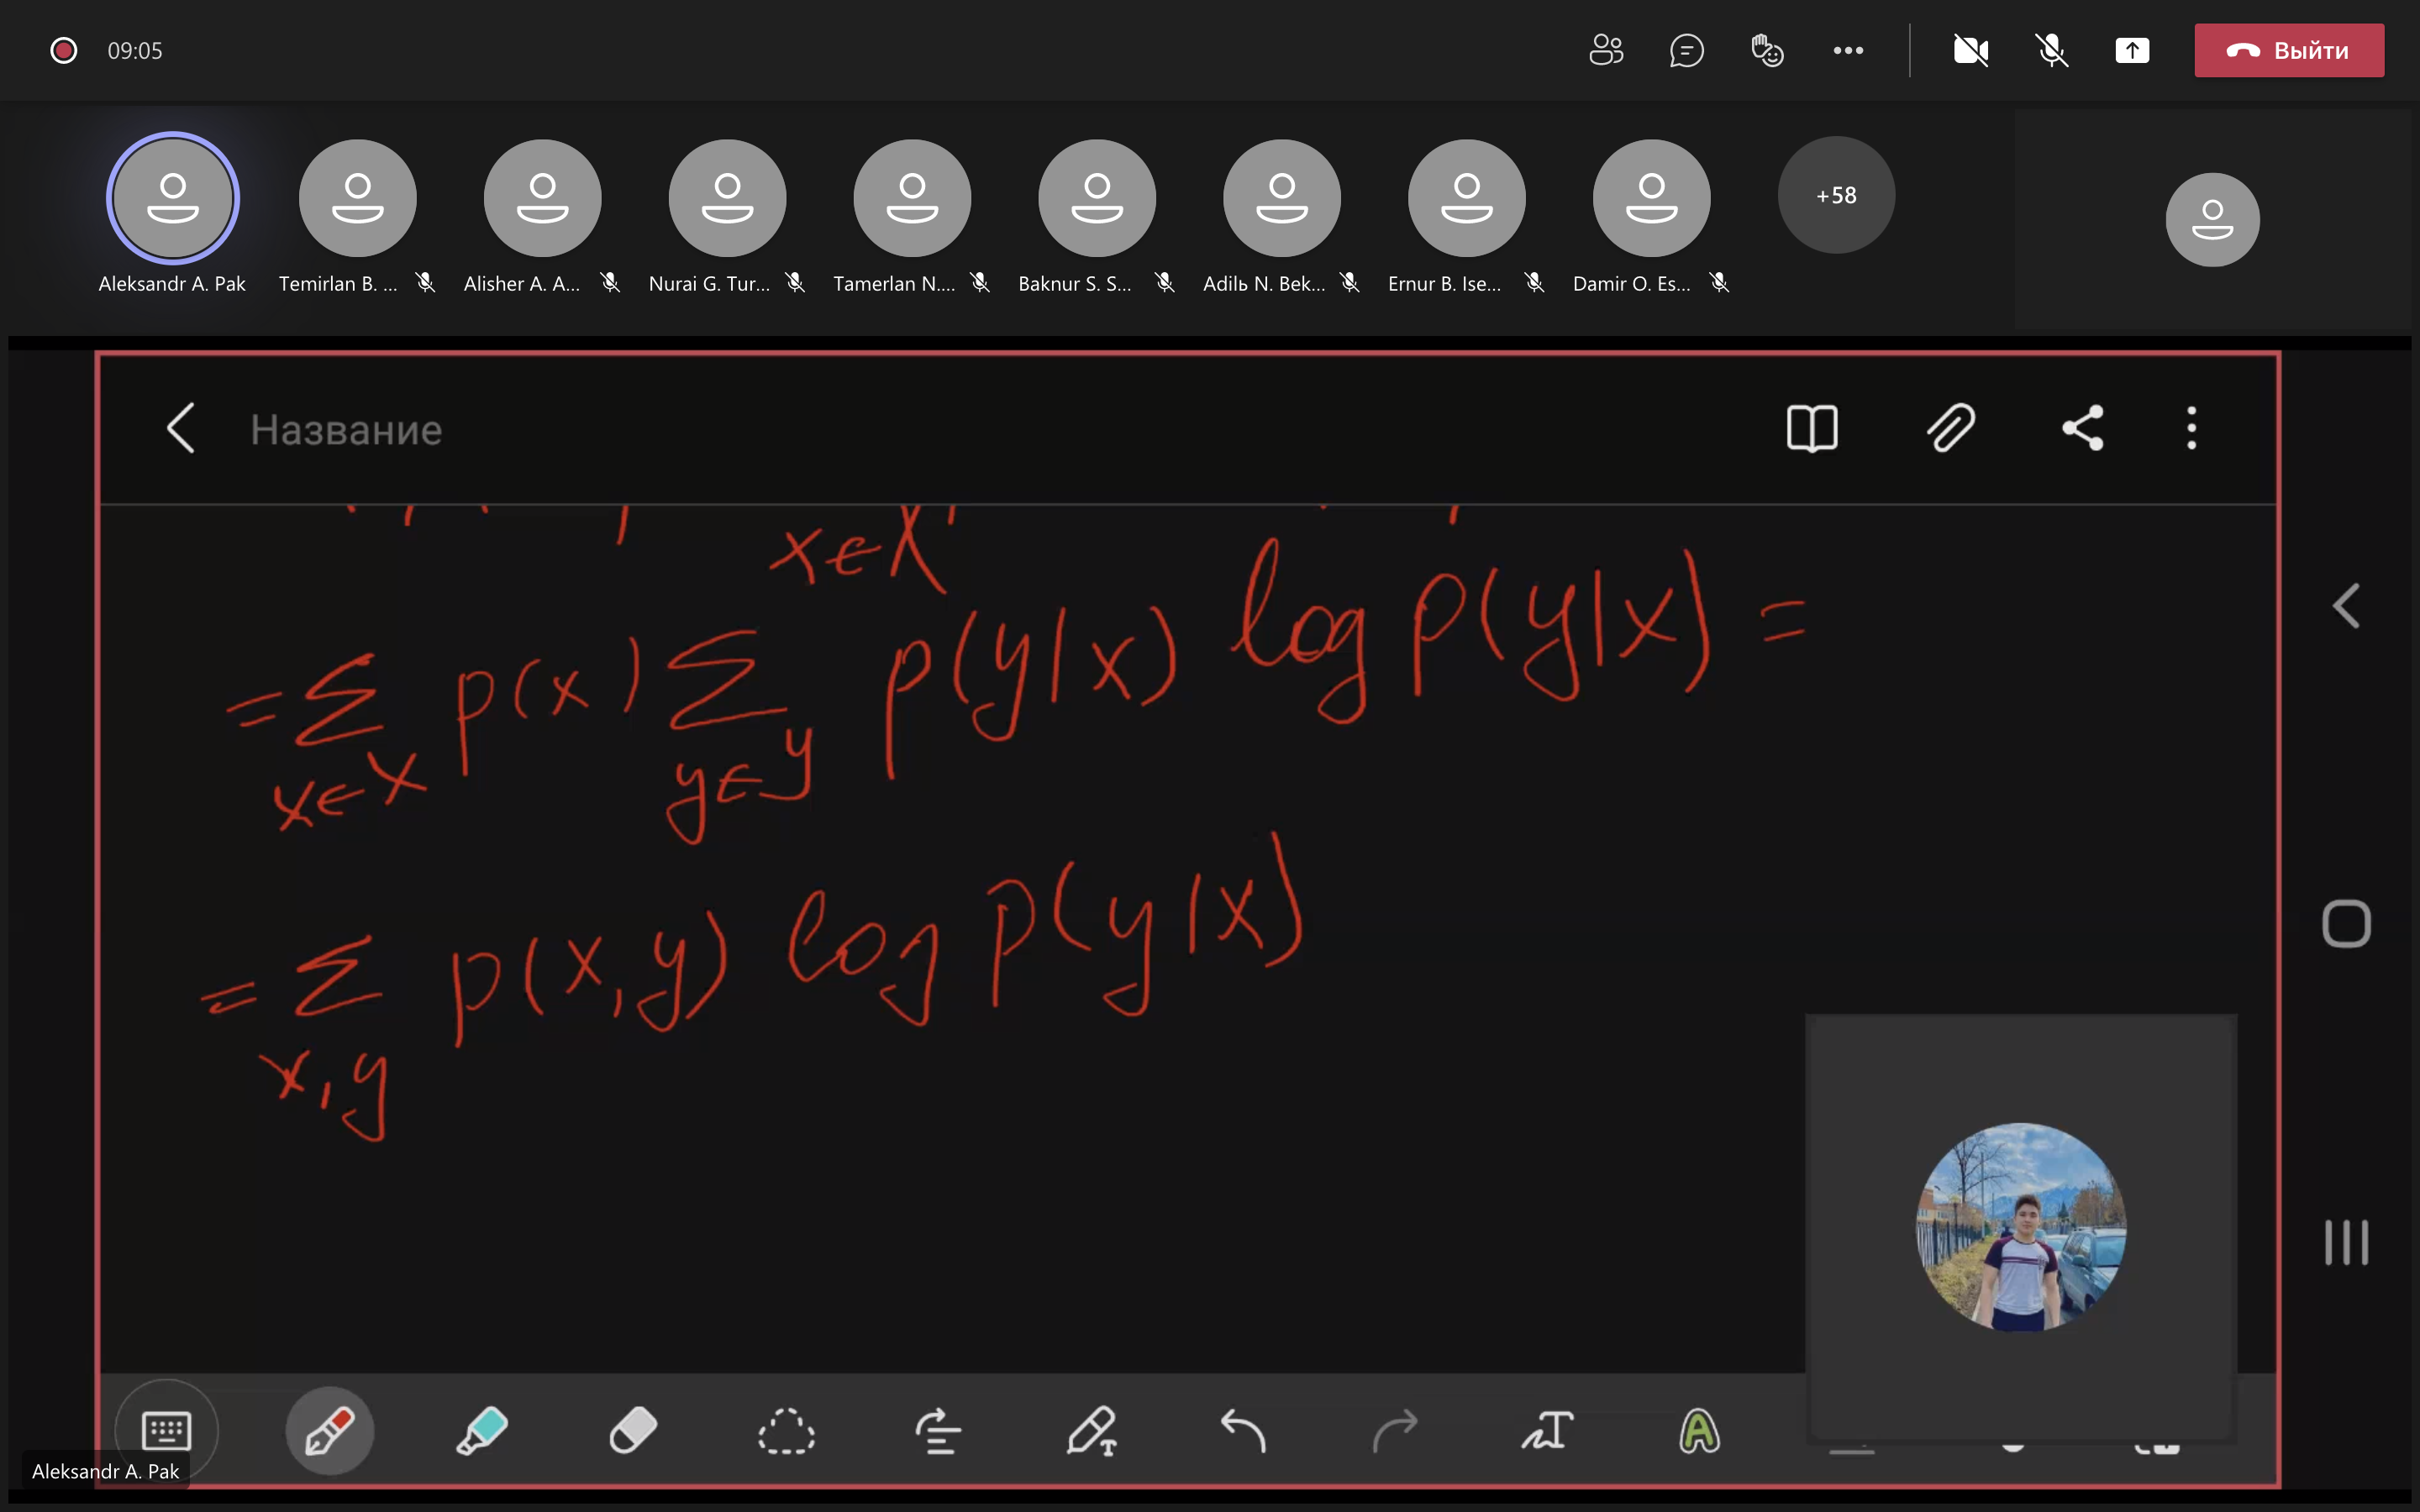 09:05
Выйти
+58
Aleksandr A. Pak
Temirlan B. ...
Alisher A. A...
Nurai G. Tur...
Tamerlan N....
Baknur S. S...
Adilь N. Bek...
Ernur B. Ise...
Damir O. Es...
Название
x∈X
=∑ p(x) ∑ p(y|x) log p(y|x) =
x∈X y∈y
=∑ p(x,y) log p(y|x)
x,y
Aleksandr A. Pak